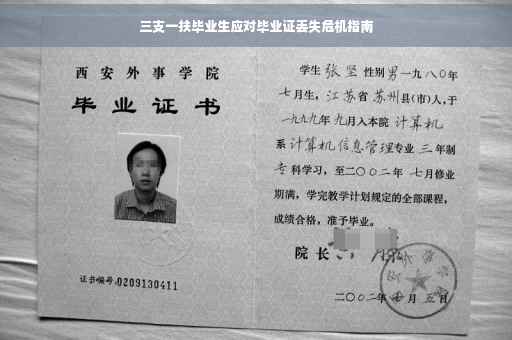 三支一扶毕业生应对毕业证丢失危机指南
西安外事学院
毕业证书
证书编号:0209130411
学生 张坚 性别 男 一九八〇年
七月生,江苏省苏州县(市)人,于
一九九九年九月入本院 计算机
系 计算机信息管理专业 三 年制
专科学习,至二〇〇二年 七月修业
期满,学完教学计划规定的全部课程,
成绩合格,准予毕业。
院长
二〇〇二年 月五日